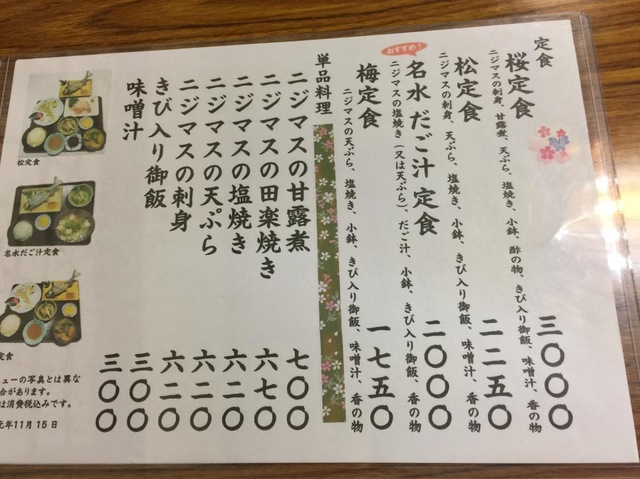 定食
桜定食 三〇〇〇
ニジマスの刺身、甘露煮、天ぷら、塩焼き、小鉢、酢の物、きび入り御飯、味噌汁、香の物
松定食 二二五〇
ニジマスの刺身、天ぷら、塩焼き、小鉢、きび入り御飯、味噌汁、香の物
おすすめ!
名水だご汁定食 二〇〇〇
ニジマスの塩焼き(又は天ぷら)、だご汁、小鉢、きび入り御飯、香の物
梅定食 一七五〇
ニジマスの天ぷら、塩焼き、小鉢、きび入り御飯、味噌汁、香の物
単品料理
ニジマスの甘露煮 七〇〇
ニジマスの田楽焼き 六七〇
ニジマスの塩焼き 六二〇
ニジマスの天ぷら 六二〇
ニジマスの刺身 六二〇
きび入り御飯 三〇〇
味噌汁 三〇〇
松定食
名水だご汁定食
定食
ューの写真とは異な
合があります。
は消費税込みです。
元年11月15日